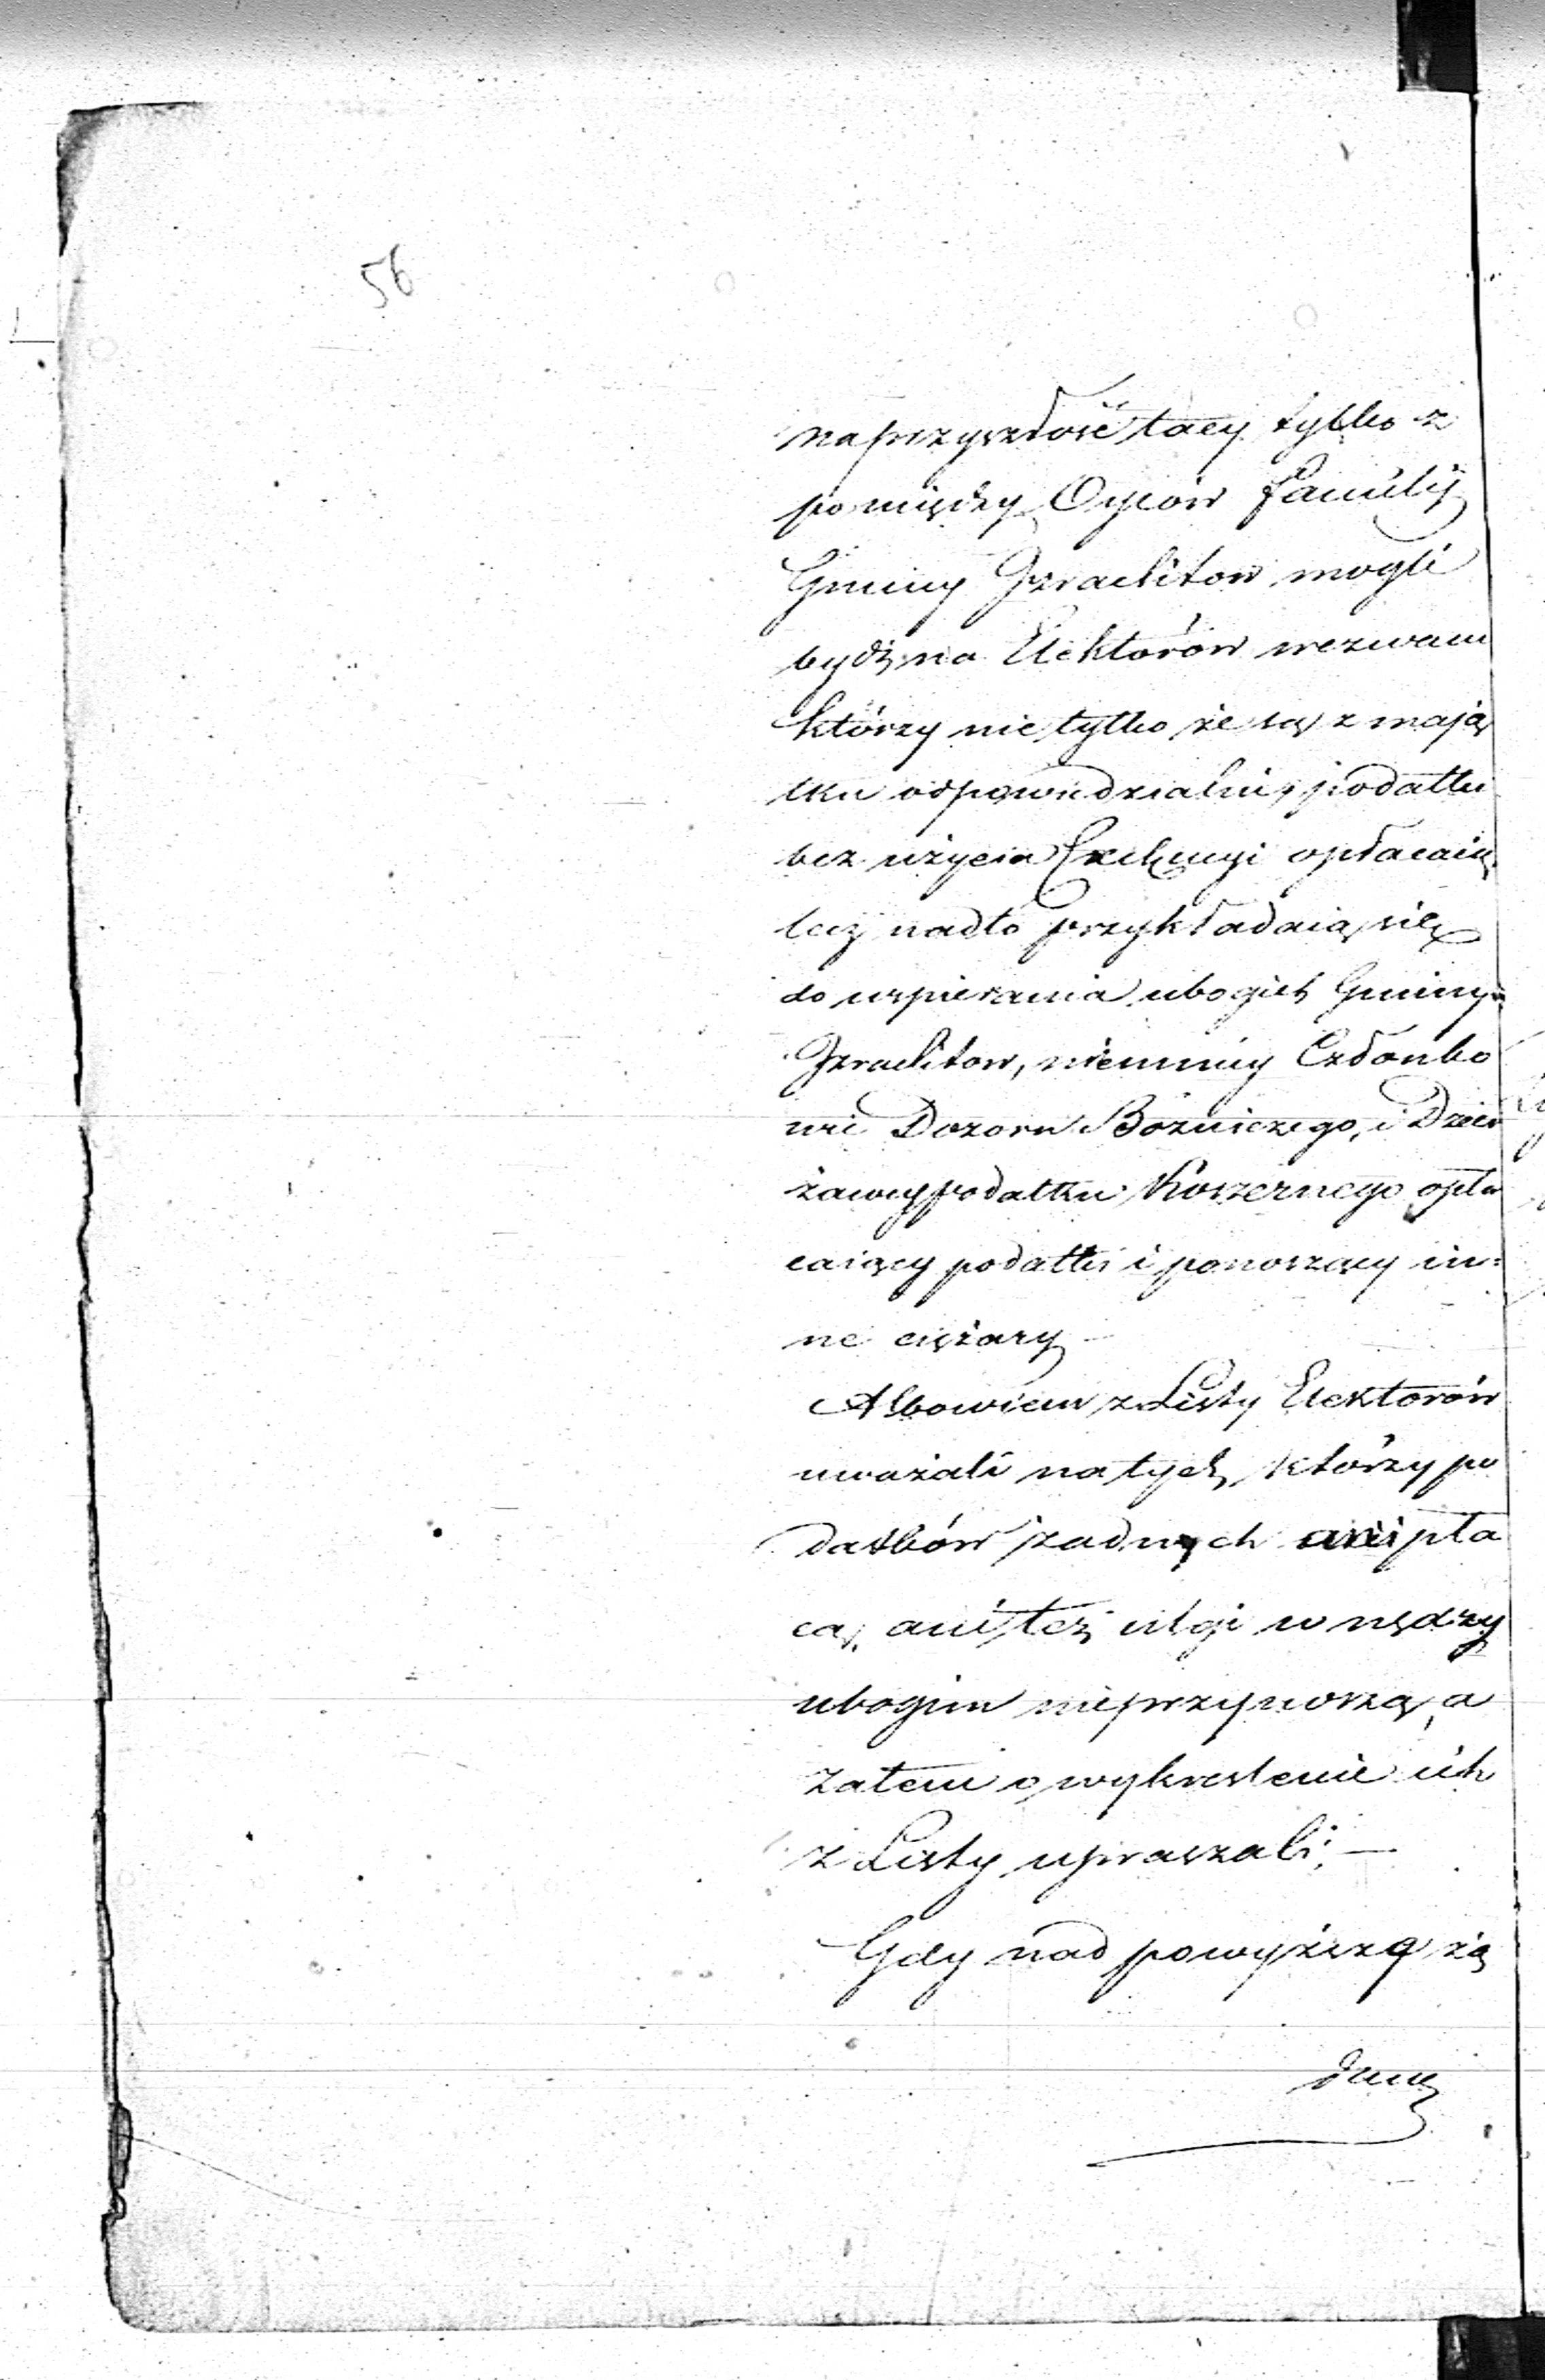 56
na przyszłość tacy tylko z
pomiędzy Oyców Familij
Gminy Izraelitow mogli
bydź na Elektorów wezwani
którzy nie tylko że są z mają
tku odpowiedzialni, podatki
bez użycia Exekucyi opłacaią
lecz nadto przykładaią się
do wspierania ubogich Gminy
Izraelitow, niemniey Członko
wie Dozoru Bożniczego, i Dzier
żawcy podatku Koszernego opła
caiący podatki i ponoszący in=
ne ciężary –
Albowiem z Listy Elektorów
uważali na tych, którzy po
datków żadnych ani pła
cą, ani też ulgi w nędzy
ubogim nieprzynoszą, a
zatem o wykreslenie ich
z Listy upraszali; —
Gdy nad powyższą żą
daną